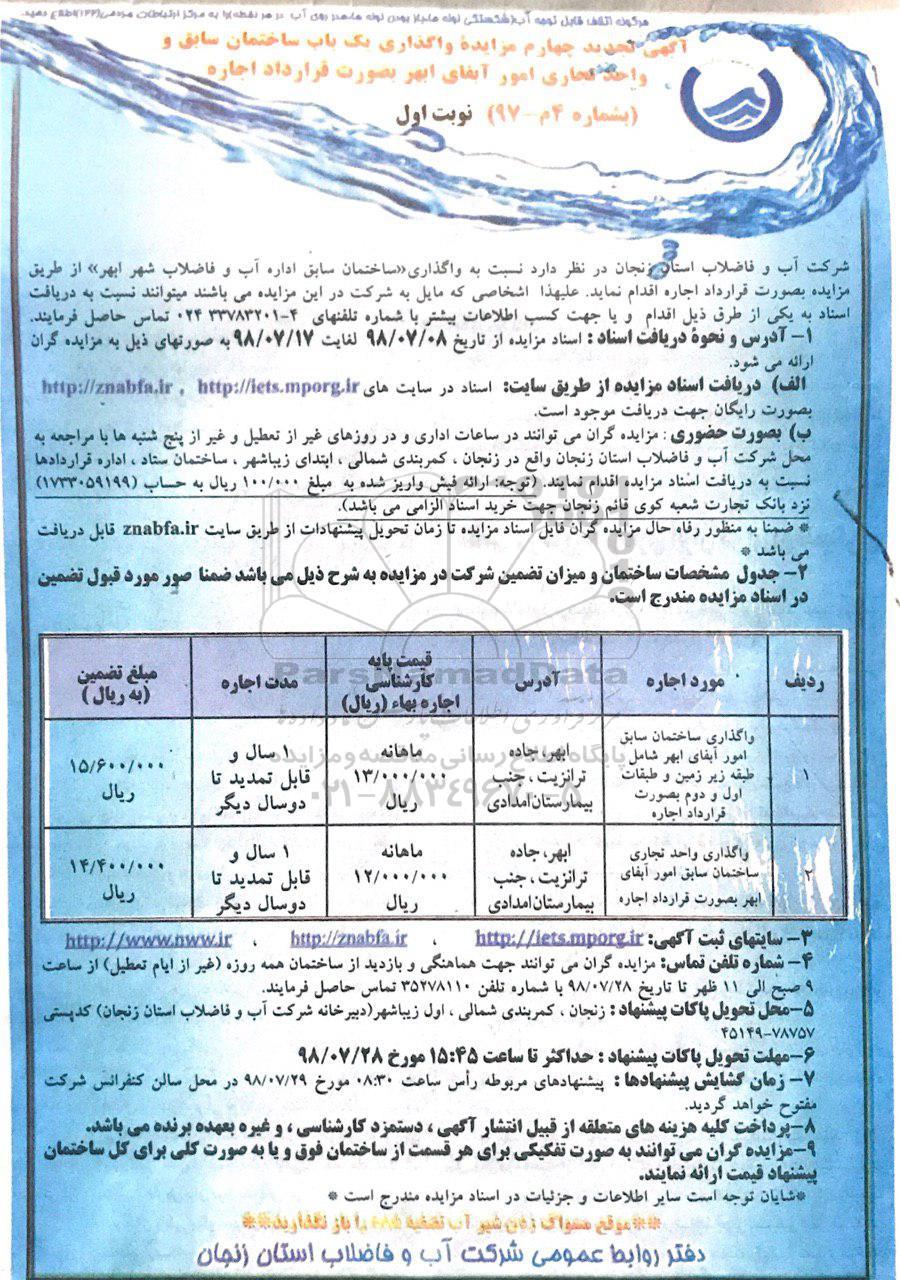 هرگونه اتلاف قابل توجه آب(شکستگی لوله ها،باز بودن لوله ها،هدر روی آب در هر نقطه)را به مرکز ارتباطات مردمی(۱۲۲)اطلاع دهید.
آگهی تجدید چهارم مزایدهٔ واگذاری یک باب ساختمان سابق و
واحد تجاری امور آبفای ابهر بصورت قرارداد اجاره
(بشماره ۴م-۹۷) نوبت اول
شرکت آب و فاضلاب استان زنجان در نظر دارد نسبت به واگذاری«ساختمان سابق اداره آب و فاضلاب شهر ابهر» از طریق
مزایده بصورت قرارداد اجاره اقدام نماید. علیهذا اشخاصی که مایل به شرکت در این مزایده می باشند میتوانند نسبت به دریافت
اسناد به یکی از طرق ذیل اقدام و یا جهت کسب اطلاعات بیشتر با شماره تلفنهای ۴-۳۳۷۸۳۲۰۱ ۰۲۴ تماس حاصل فرمایند.
۱- آدرس و نحوهٔ دریافت اسناد : اسناد مزایده از تاریخ ۹۸/۰۷/۰۸ لغایت ۹۸/۰۷/۱۷ به صورتهای ذیل به مزایده گران
ارائه می شود.
الف) دریافت اسناد مزایده از طریق سایت: اسناد در سایت های http://iets.mporg.ir , http://znabfa.ir
بصورت رایگان جهت دریافت موجود است.
ب) بصورت حضوری : مزایده گران می توانند در ساعات اداری و در روزهای غیر از تعطیل و غیر از پنج شنبه ها با مراجعه به
محل شرکت آب و فاضلاب استان زنجان واقع در زنجان ، کمربندی شمالی ، ابتدای زیباشهر ، ساختمان ستاد ، اداره قراردادها
نسبت به دریافت اسناد مزایده اقدام نمایند. (توجه: ارائه فیش واریز شده به مبلغ ۱۰۰/۰۰۰ ریال به حساب (۱۷۳۳۰۵۹۱۹۹)
نزد بانک تجارت شعبه کوی قائم زنجان جهت خرید اسناد الزامی می باشد).
* ضمنا به منظور رفاه حال مزایده گران فایل اسناد مزایده تا زمان تحویل پیشنهادات از طریق سایت znabfa.ir قابل دریافت
می باشد *
۲- جدول مشخصات ساختمان و میزان تضمین شرکت در مزایده به شرح ذیل می باشد ضمنا صور مورد قبول تضمین
در اسناد مزایده مندرج است.
ParsNamadData
پایگاه اطلاع رسانی مناقصه و مزایده
۰۲۱-۸۸۳۴۹۶۷۰-۵
ردیف مورد اجاره آدرس قیمت پایه کارشناسی اجاره بهاء (ریال) مدت اجاره مبلغ تضمین (به ریال)
۱ واگذاری ساختمان سابق امور آبفای ابهر شامل طبقه زیر زمین و طبقات اول و دوم بصورت قرارداد اجاره ابهر، جاده ترانزیت ، جنب بیمارستان امدادی ماهانه ۱۳/۰۰۰/۰۰۰ ریال ۱ سال و قابل تمدید تا دوسال دیگر ۱۵/۶۰۰/۰۰۰ ریال
۲ واگذاری واحد تجاری ساختمان سابق امور آبفای ابهر بصورت قرارداد اجاره ابهر، جاده ترانزیت ، جنب بیمارستان امدادی ماهانه ۱۲/۰۰۰/۰۰۰ ریال ۱ سال و قابل تمدید تا دوسال دیگر ۱۴/۴۰۰/۰۰۰ ریال
۳- سایتهای ثبت آگهی: http://iets.mporg.ir ، http://znabfa.ir ، http://www.nww.ir
۴- شماره تلفن تماس: مزایده گران می توانند جهت هماهنگی و بازدید از ساختمان همه روزه (غیر از ایام تعطیل) از ساعت
۹ صبح الی ۱۱ ظهر تا تاریخ ۹۸/۰۷/۲۸ با شماره تلفن ۳۵۲۷۸۱۱۰ تماس حاصل فرمایند.
۵-محل تحویل پاکات پیشنهاد : زنجان ، کمربندی شمالی ، اول زیباشهر(دبیرخانه شرکت آب و فاضلاب استان زنجان) کدپستی
۷۸۷۵۷-۴۵۱۴۹
۶-مهلت تحویل پاکات پیشنهاد : حداکثر تا ساعت ۱۵:۴۵ مورخ ۹۸/۰۷/۲۸
۷- زمان گشایش پیشنهادها : پیشنهادهای مربوطه رأس ساعت ۰۸:۳۰ مورخ ۹۸/۰۷/۲۹ در محل سالن کنفرانس شرکت
مفتوح خواهد گردید.
۸-پرداخت کلیه هزینه های متعلقه از قبیل انتشار آگهی ، دستمزد کارشناسی ، و غیره بعهده برنده می باشد.
۹-مزایده گران می توانند به صورت تفکیکی برای هر قسمت از ساختمان فوق و یا به صورت کلی برای کل ساختمان
پیشنهاد قیمت ارائه نمایند.
*شایان توجه است سایر اطلاعات و جزئیات در اسناد مزایده مندرج است *
**موقع مسواک زدن شیر آب تصفیه شده را باز نگذارید**
دفتر روابط عمومی شرکت آب و فاضلاب استان زنجان